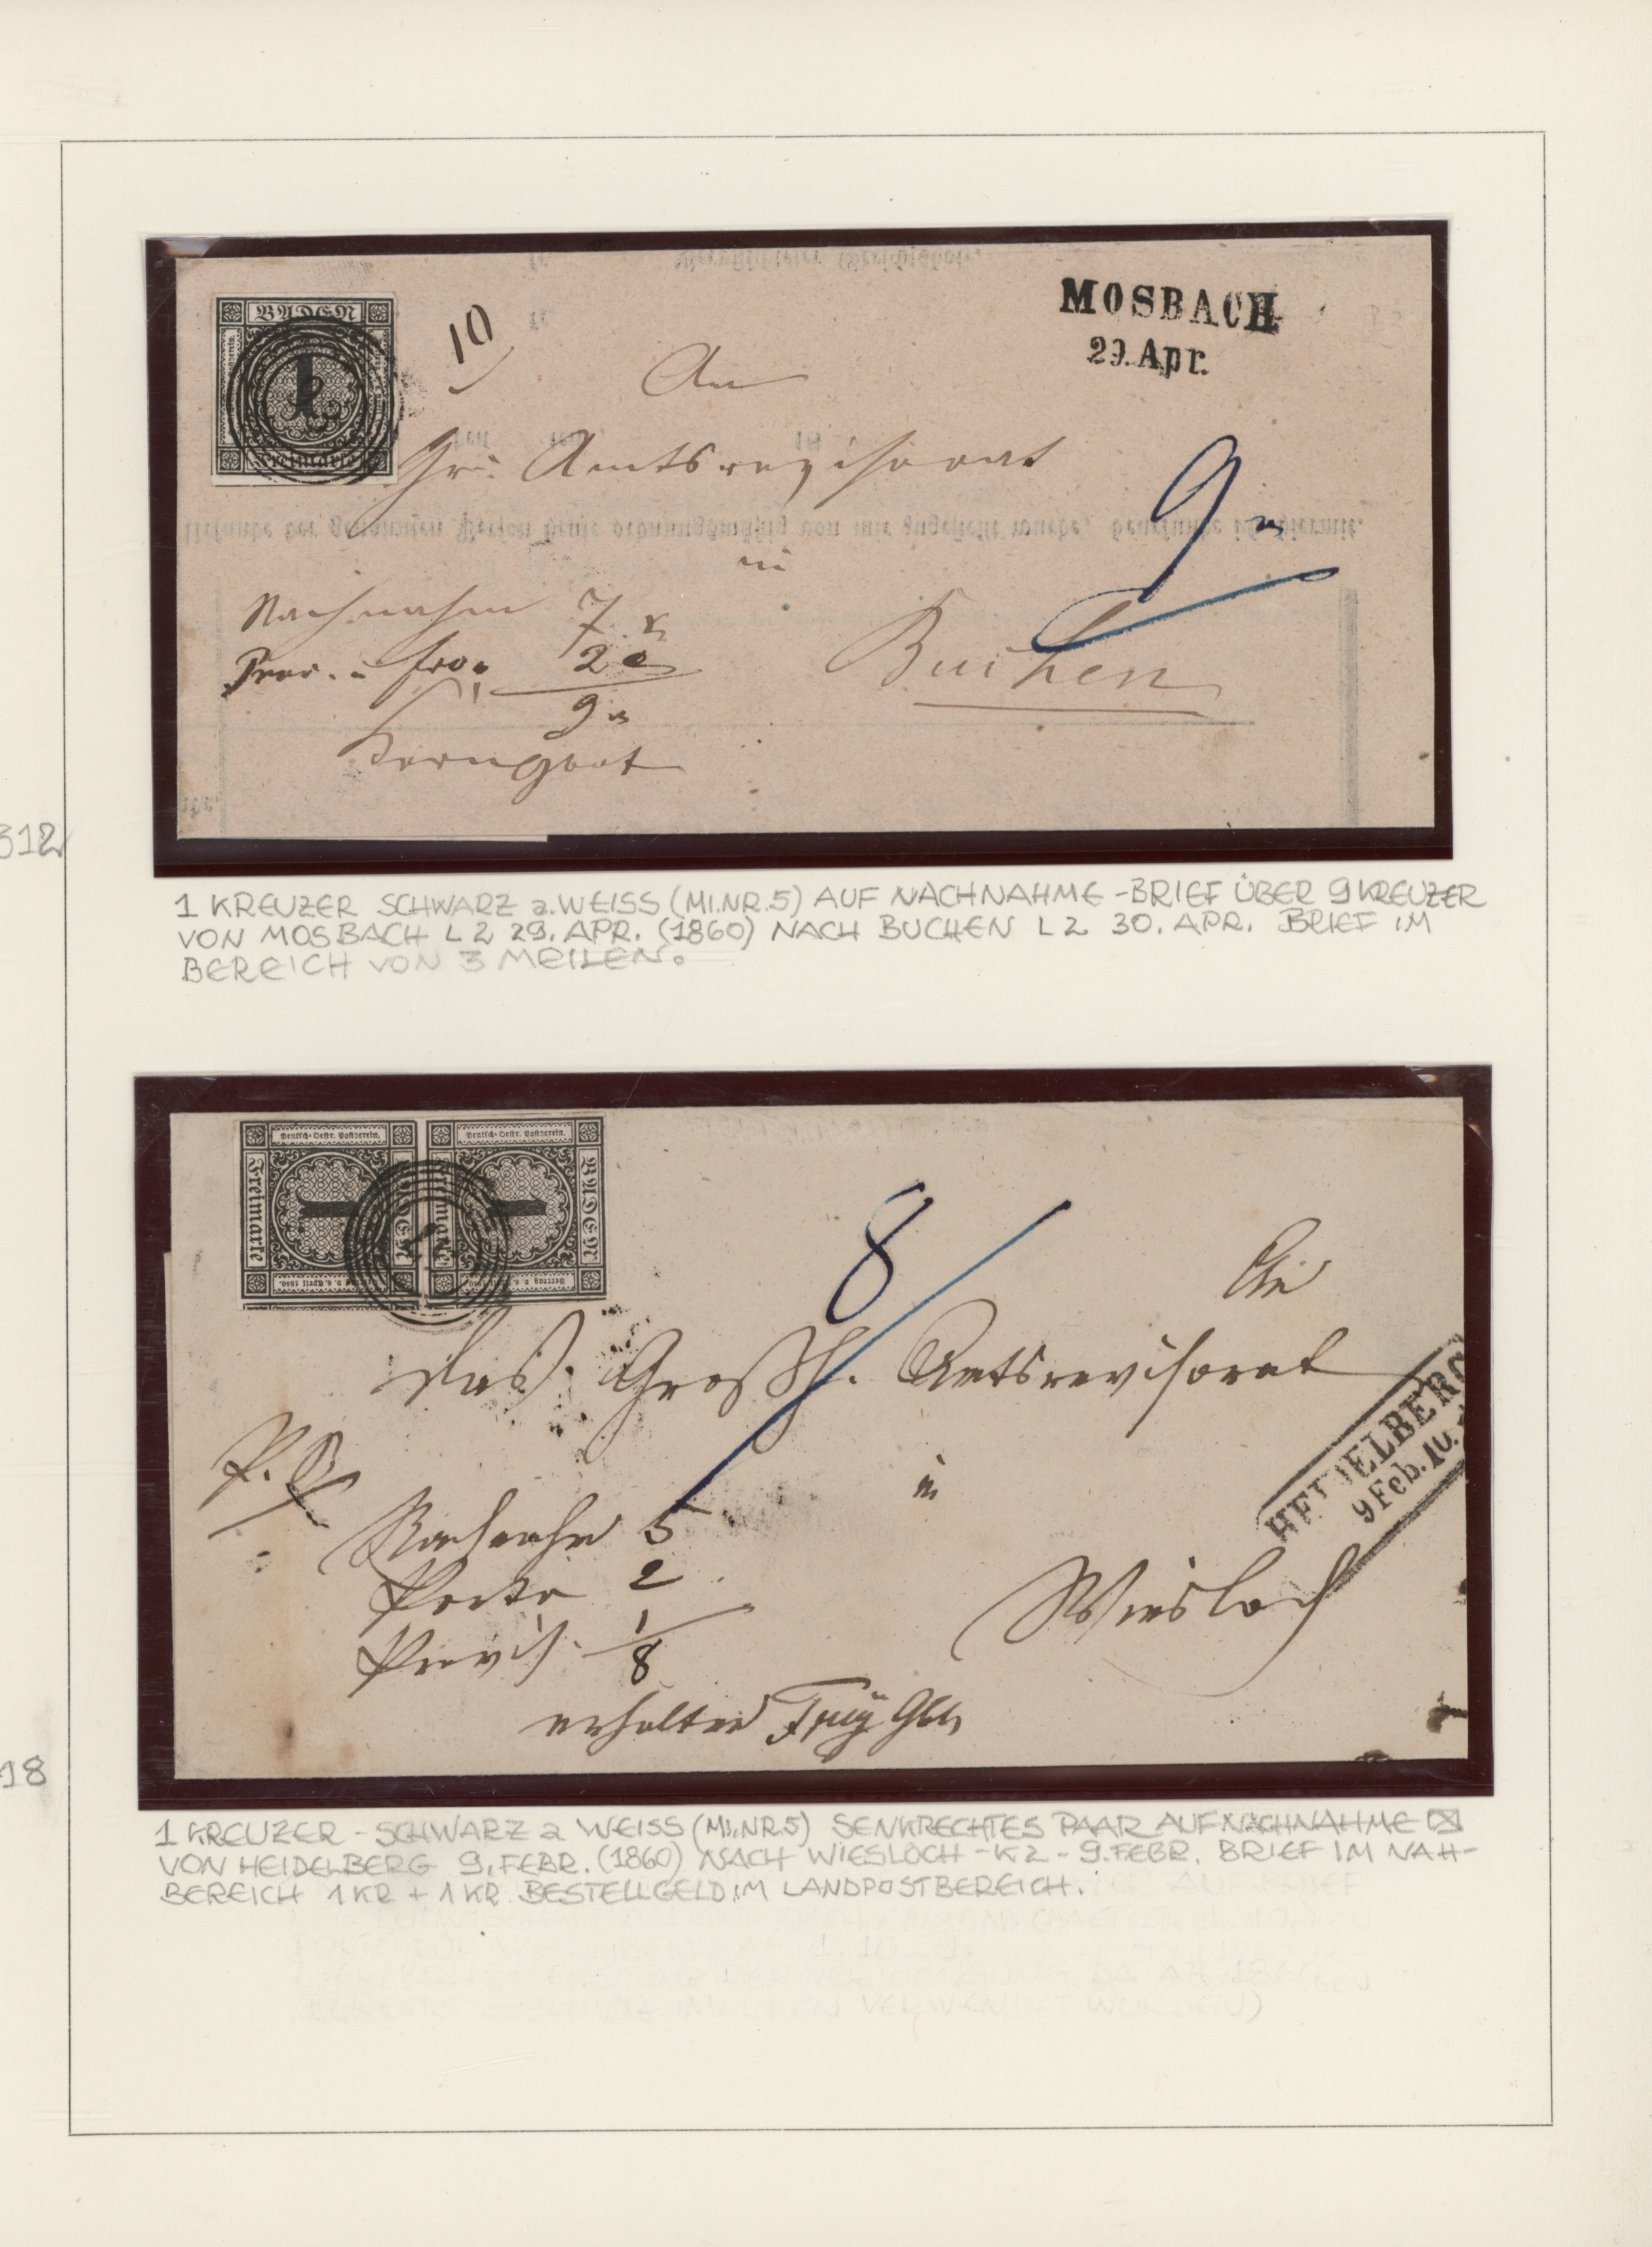 BADEN
1
Freimarke
10
MOSBACH
29. Apr.
An
Gr. Amtsrevisorat
9
in
Nachnahm 7 x
Prov. u fro. 2
9
Buchen
312
1 KREUZER SCHWARZ a. WEISS (MI.NR.5) AUF NACHNAHME-BRIEF ÜBER 9 KREUZER
VON MOSBACH L2 29. APR. (1860) NACH BUCHEN L2 30. APR. BRIEF IM
BEREICH VON 3 MEILEN.
Deutsch-Oestr. Postverein. Deutsch-Oestr. Postverein.
Freimarke 1 BADEN Freimarke 1 BADEN
Vertrag v. 6 April 1850. Vertrag v. 6 April 1850.
8
An
das Großh. Amtsrevisorat
in
HEIDELBERG
9 Feb. 10.
Nachnahme 5
Porto 2
Provis. 1
8
Wiesloch
erhalten
18
1 KREUZER - SCHWARZ a WEISS (MI.NR5) SENKRECHTES PAAR AUF NACHNAHME
VON HEIDELBERG 9. FEBR. (1860) NACH WIESLOCH - K2 - 9. FEBR. BRIEF IM NAH-
BEREICH 1 KR + 1 KR. BESTELLGELD IM LANDPOSTBEREICH.